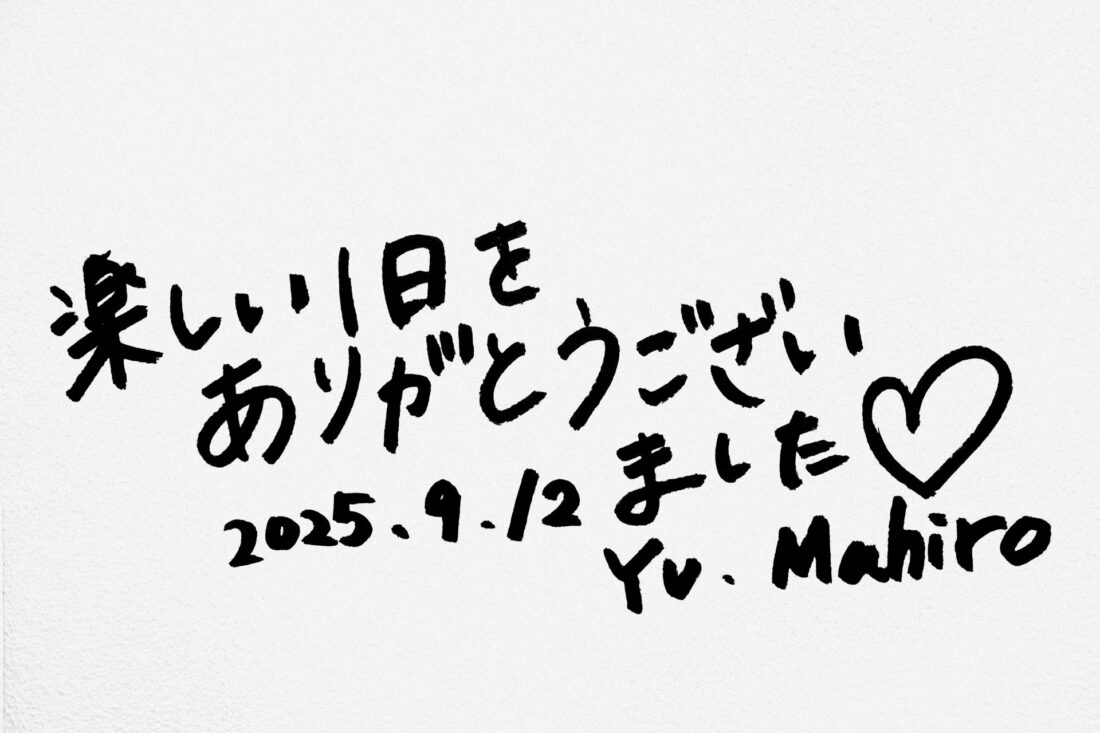 楽しい1日を
ありがとうござい
ました♡
2025.9.12
Yu. Mahiro